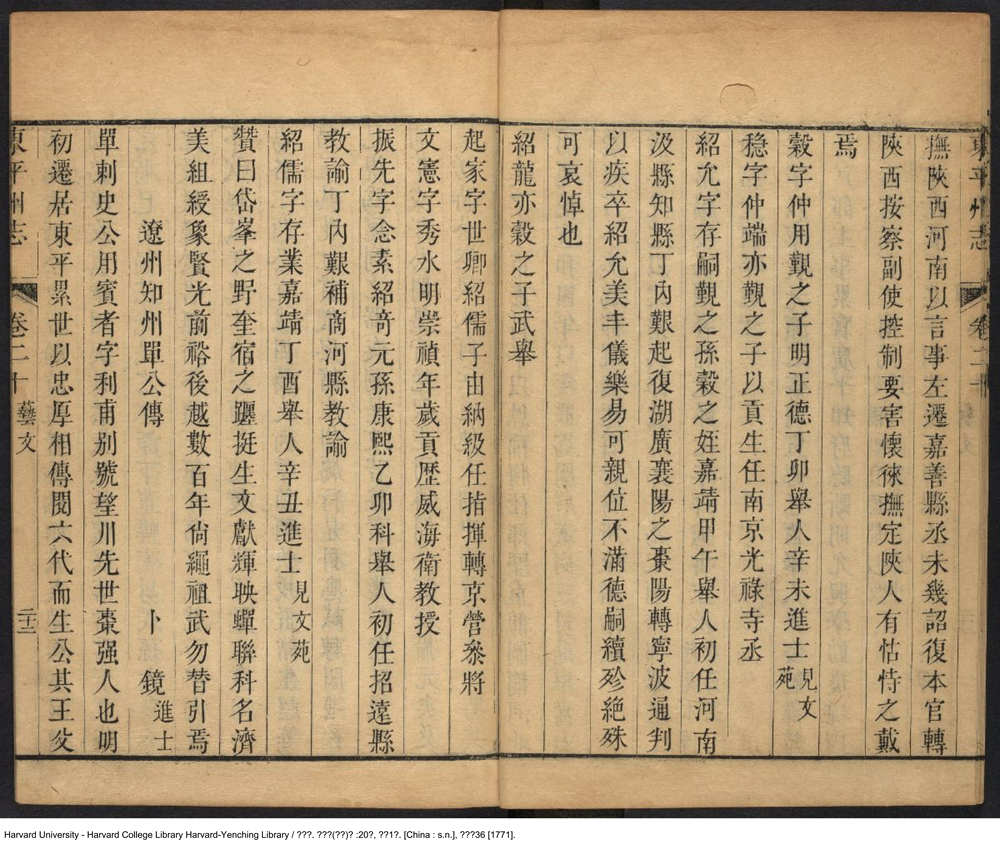 東平州志 卷二十
撫陝西河南以言事左遷嘉善縣丞未幾詔復本官轉
陝西按察副使控制要害懷徠撫定陝人有怙恃之戴
焉
穀字仲用觀之子明正德丁卯舉人辛未進士見文苑
穏字仲端亦觀之子以貢生任南京光祿寺丞
紹允字存嗣觀之孫穀之姪嘉靖甲午舉人初任河南
汲縣知縣丁內艱起復湖廣襄陽之棗陽轉寧波通判
以疾卒紹允美丰儀樂易可親位不滿德嗣續殄絶殊
可哀悼也
紹龍亦穀之子武舉
起家字世卿紹儒子由納級任指揮轉京營叅將
文憲字秀水明崇禎年歲貢歷威海衛教授
振先字念素紹奇元孫康熙乙卯科舉人初任招遠縣
教諭丁內艱補商河縣教諭
紹儒字存業嘉靖丁酉舉人辛丑進士見文苑
贊曰岱峯之野奎宿之躔挺生文獻輝映蟬聯科名濟
美組綬象賢光前裕後越數百年尚繩祖武勿替引焉
遼州知州單公傳 卜鏡進士
單刺史公用賓者字利甫别號望川先世棗强人也明
初遷居東平累世以忠厚相傳閱六代而生公其王父
東平州志 卷二十 藝文 二十二
Harvard University - Harvard College Library Harvard-Yenching Library / ???. ???(??)? :20?, ??1?. [China : s.n.], ???36 [1771].